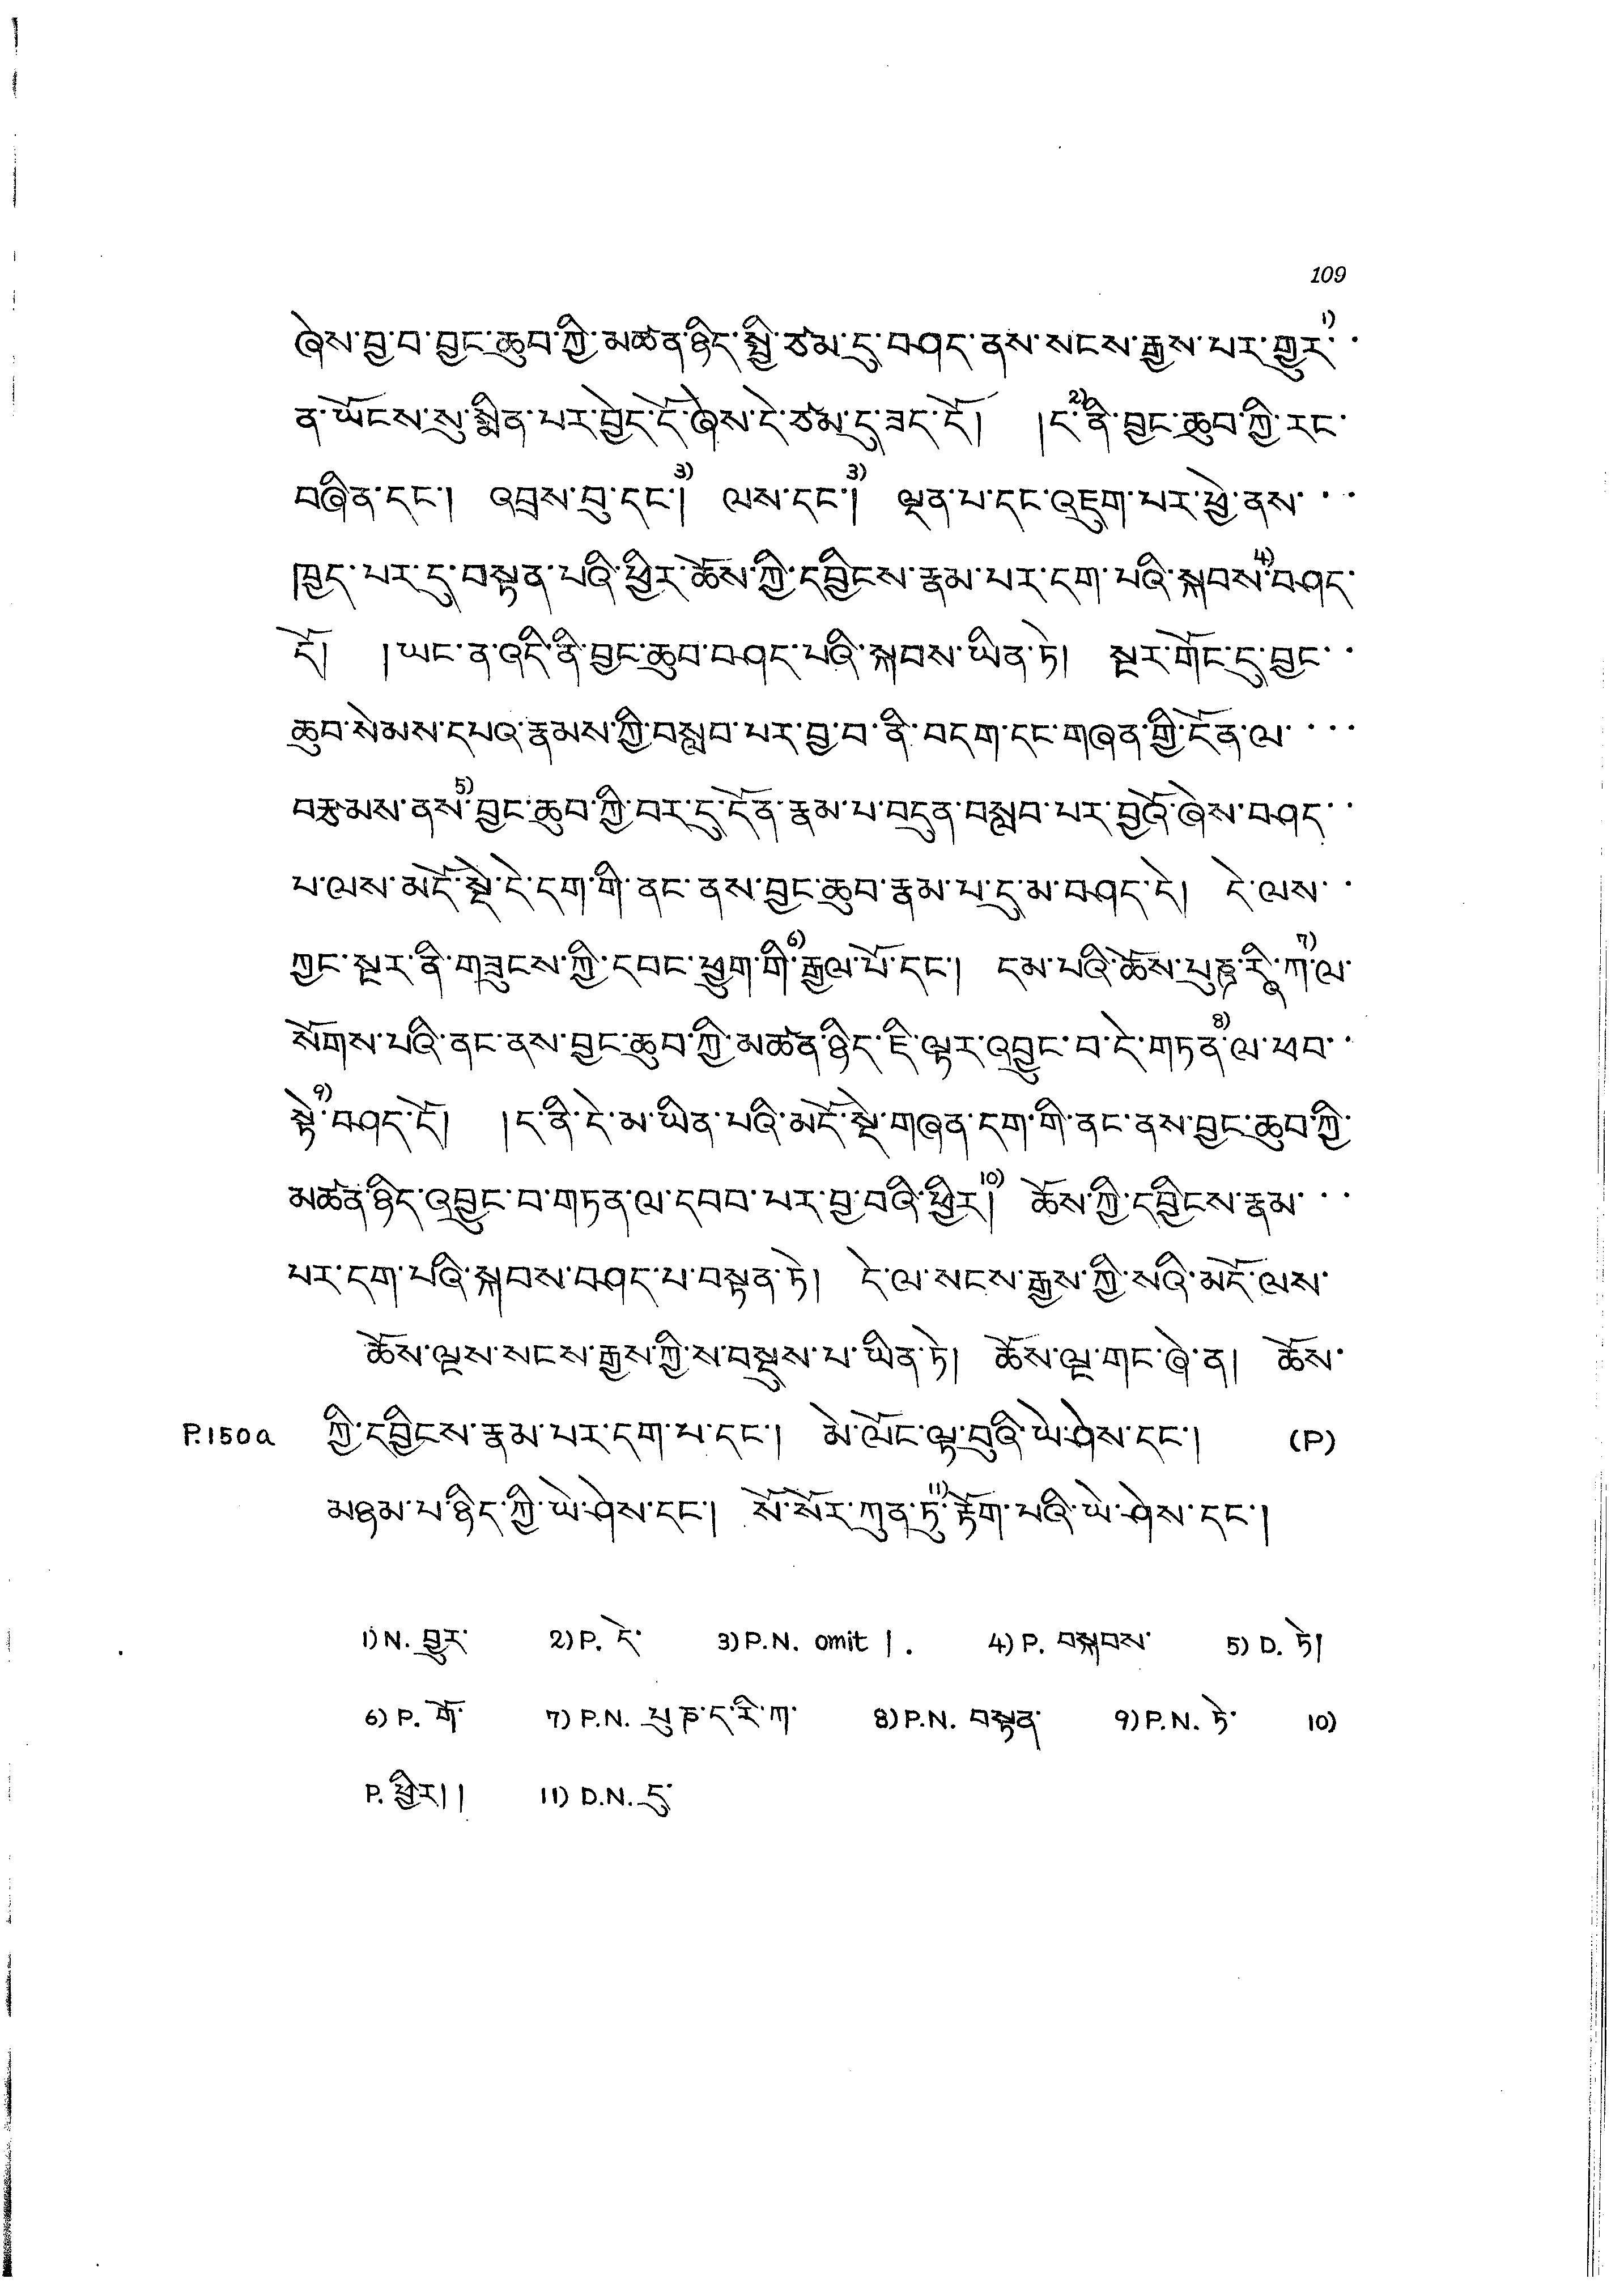 109
ཞེས་བྱ་བ་བྱང་ཆུབ་ཀྱི་མཚན་ཉིད་སྤྱི་ཙམ་དུ་བཤད་ནས་སངས་རྒྱས་པར་གྱུར་1)··
ན་ཡོངས་སུ་སྨིན་པར་བྱེད་དོ་ཞེས་དེ་ཙམ་དུ་ཟད་དོ། །ད་2)ནི་བྱང་ཆུབ་ཀྱི་རང་
བཞིན་དང་། འབྲས་བུ་དང་།3) ལས་དང་།3) ལྡན་པ་དང་འཇུག་པར་ཕྱེ་ནས་···
ཁྱད་པར་དུ་བསྟན་པའི་ཕྱིར་ཆོས་ཀྱི་དབྱིངས་རྣམ་པར་དག་པའི་སྐབས་4)བཤད་
དོ། །ཡང་ན་འདི་ནི་བྱང་ཆུབ་བཤད་པའི་སྐབས་ཡིན་ཏེ། སྔར་གོང་དུ་བྱང་··
ཆུབ་སེམས་དཔའ་རྣམས་ཀྱི་བསླབ་པར་བྱ་བ་ནི་བདག་དང་གཞན་གྱི་དོན་ལ་····
བརྩམས་ནས་5)བྱང་ཆུབ་ཀྱི་བར་དུ་དོན་རྣམ་པ་བདུན་བསླབ་པར་བྱའོ་ཞེས་བཤད་··
པ་ལས་མདོ་སྡེ་དེ་དག་གི་ནང་ནས་བྱང་ཆུབ་རྣམ་པ་དུ་མ་བཤད་དེ། དེ་ལས་··
ཀྱང་སྔར་ནི་གཟུངས་ཀྱི་དབང་ཕྱུག་གི་6)རྒྱལ་པོ་དང་། དམ་པའི་ཆོས་པུཎྜ་རཱི་ཀ་7)ལ་
སོགས་པའི་ནང་ནས་བྱང་ཆུབ་ཀྱི་མཚན་ཉིད་ཇི་ལྟར་འབྱུང་བ་དེ་གཏན་8)ལ་ཕབ་··
སྟེ་9)བཤད་དོ། །ད་ནི་དེ་མ་ཡིན་པའི་མདོ་སྡེ་གཞན་དག་གི་ནང་ནས་བྱང་ཆུབ་ཀྱི་
མཚན་ཉིད་འབྱུང་བ་གཏན་ལ་དབབ་པར་བྱ་བའི་ཕྱིར།10) ཆོས་ཀྱི་དབྱིངས་རྣམ་···
པར་དག་པའི་སྐབས་བཤད་པ་བསྟན་ཏེ། དེ་ལ་སངས་རྒྱས་ཀྱི་སའི་མདོ་ལས་
ཆོས་ལྔས་སངས་རྒྱས་ཀྱི་ས་བསྡུས་པ་ཡིན་ཏེ། ཆོས་ལྔ་གང་ཞེ་ན། ཆོས་
P.150a ཀྱི་དབྱིངས་རྣམ་པར་དག་པ་དང་། མེ་ལོང་ལྟ་བུའི་ཡེ་ཤེས་དང་། (P)
མཉམ་པ་ཉིད་ཀྱི་ཡེ་ཤེས་དང་། སོ་སོར་ཀུན་ཏུ་11)རྟོག་པའི་ཡེ་ཤེས་དང་།
1) N. བྱུར་ 2) P. དེ་ 3) P.N. omit །. 4) P. བསྐབས་ 5) D. ཏེ།
6) P. གོ་ 7) P.N. པུཎ་ད་རི་ཀ་ 8) P.N. བསྟན་ 9) P.N. ཏེ་ 10)
P. ཕྱིར།། 11) D.N. དུ་